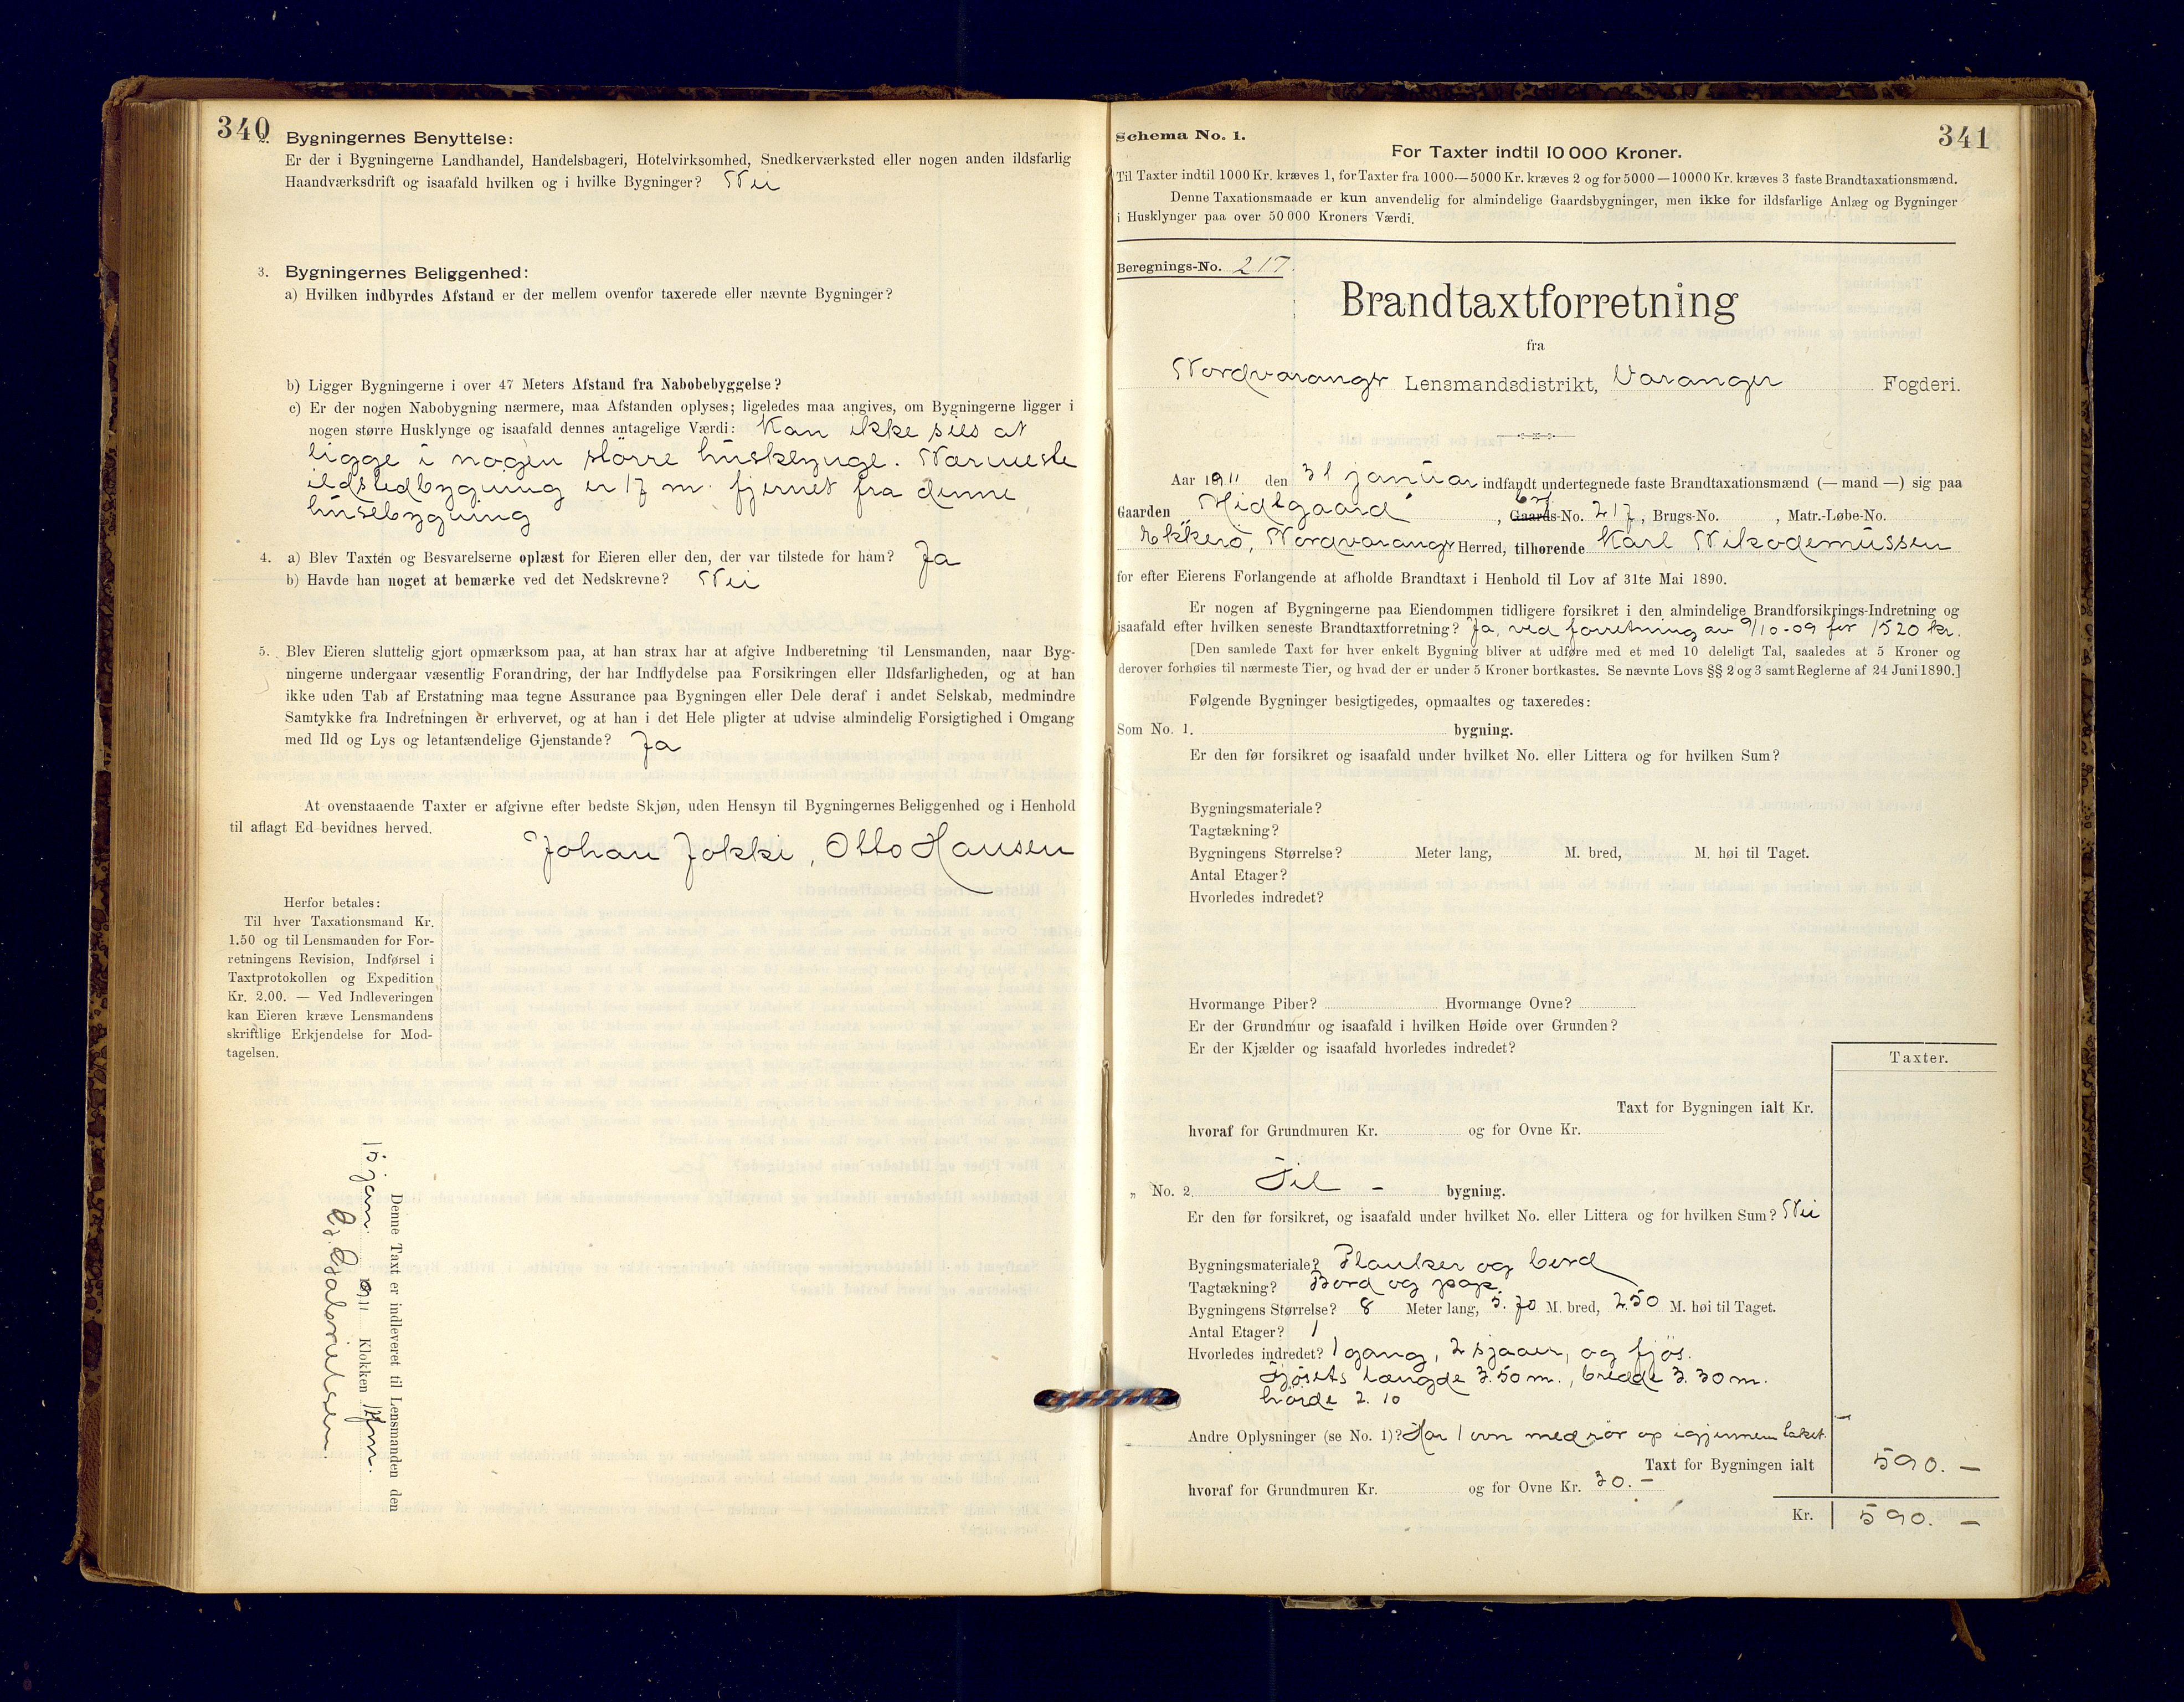 340
2. Bygningernes Benyttelse:
Er der i Bygningerne Landhandel, Handelsbageri, Hotelvirksomhed, Snedkerværksted eller nogen anden ildsfarlig
Haandværksdrift og isaafald hvilken og i hvilke Bygninger? Nei
3. Bygningernes Beliggenhed:
a) Hvilken indbyrdes Afstand er der mellem ovenfor taxerede eller nævnte Bygninger?
b) Ligger Bygningerne i over 47 Meters Afstand fra Nabobebyggelse?
c) Er der nogen Nabobygning nærmere, maa Afstanden oplyses; ligeledes maa angives, om Bygningerne ligger i
nogen større Husklynge og isaafald dennes antagelige Værdi: Kan ikke sies at
ligge i nogen större husklynge. Nærmeste
ildstedbygning er 17 m. fjernet fra denne
husebygning
4. a) Blev Taxten og Besvarelserne oplæst for Eieren eller den, der var tilstede for ham? Ja
b) Havde han noget at bemærke ved det Nedskrevne? Nei
5. Blev Eieren sluttelig gjort opmærksom paa, at han strax har at afgive Indberetning til Lensmanden, naar Byg-
ningerne undergaar væsentlig Forandring, der har Indflydelse paa Forsikringen eller Ildsfarligheden, og at han
ikke uden Tab af Erstatning maa tegne Assurance paa Bygningen eller Dele deraf i andet Selskab, medmindre
Samtykke fra Indretningen er erhvervet, og at han i det Hele pligter at udvise almindelig Forsigtighed i Omgang
med Ild og Lys og letantændelige Gjenstande? Ja
At ovenstaaende Taxter er afgivne efter bedste Skjøn, uden Hensyn til Bygningernes Beliggenhed og i Henhold
til aflagt Ed bevidnes herved.
Johan Jokki, Otto Hansen
Herfor betales:
Til hver Taxationsmand Kr.
1.50 og til Lensmanden for For-
retningens Revision, Indførsel i
Taxtprotokollen og Expedition
Kr. 2.00. — Ved Indleveringen
kan Eieren kræve Lensmandens
skriftlige Erkjendelse for Mod-
tagelsen.
Denne Taxt er indleveret til Lensmanden den
15 jan. 1911 Klokken 12 fm.
Gabrielsen.
Schema No. 1.
341
For Taxter indtil 10 000 Kroner.
Til Taxter indtil 1000 Kr. kræves 1, for Taxter fra 1000—5000 Kr. kræves 2 og for 5000—10000 Kr. kræves 3 faste Brandtaxationsmænd.
Denne Taxationsmaade er kun anvendelig for almindelige Gaardsbygninger, men ikke for ildsfarlige Anlæg og Bygninger
i Husklynger paa over 50 000 Kroners Værdi.
Beregnings-No. 217.
Brandtaxtforretning
fra
Nordvaranger Lensmandsdistrikt, Varanger Fogderi.
Aar 1911 den 31 januar indfandt undertegnede faste Brandtaxationsmænd (— mand —) sig paa
Gaarden Midtgaard, Gaards-No. 217, Brugs-No. , Matr.-Løbe-No.
Ekkerö, Nordvaranger Herred, tilhørende Karl Nikodemussen
for efter Eierens Forlangende at afholde Brandtaxt i Henhold til Lov af 31te Mai 1890.
Er nogen af Bygningerne paa Eiendommen tidligere forsikret i den almindelige Brandforsikrings-Indretning og
isaafald efter hvilken seneste Brandtaxtforretning? Ja, ved forretning av 9/10-09 for 1520 kr.
[Den samlede Taxt for hver enkelt Bygning bliver at udføre med et med 10 deleligt Tal, saaledes at 5 Kroner og
derover forhøies til nærmeste Tier, og hvad der er under 5 Kroner bortkastes. Se nævnte Lovs §§ 2 og 3 samt Reglerne af 24 Juni 1890.]
Følgende Bygninger besigtigedes, opmaaltes og taxeredes:
Som No. 1. bygning.
Er den før forsikret og isaafald under hvilket No. eller Littera og for hvilken Sum?
Bygningsmateriale?
Tagtækning?
Bygningens Størrelse? Meter lang, M. bred, M. høi til Taget.
Antal Etager?
Hvorledes indredet?
Hvormange Piber? Hvormange Ovne?
Er der Grundmur og isaafald i hvilken Høide over Grunden?
Er der Kjælder og isaafald hvorledes indredet?
Taxter.
Taxt for Bygningen ialt Kr.
hvoraf for Grundmuren Kr. og for Ovne Kr.
„ No. 2. Til - bygning.
Er den før forsikret, og isaafald under hvilket No. eller Littera og for hvilken Sum? Nei
Bygningsmateriale? Planker og bord
Tagtækning? Bord og pap.
Bygningens Størrelse? 8 Meter lang, 5.70 M. bred, 2.50 M. høi til Taget.
Antal Etager? 1
Hvorledes indredet? 1 gang, 2 sjaaer, og fjös.
Fjösets længde 3.50 m., bredde 3.30 m.
höide 2.10
Andre Oplysninger (se No. 1)? Har 1 ovn med rör op igjennem taket.
Taxt for Bygningen ialt 590.—
hvoraf for Grundmuren Kr. og for Ovne Kr. 30.—
Kr. 590.—